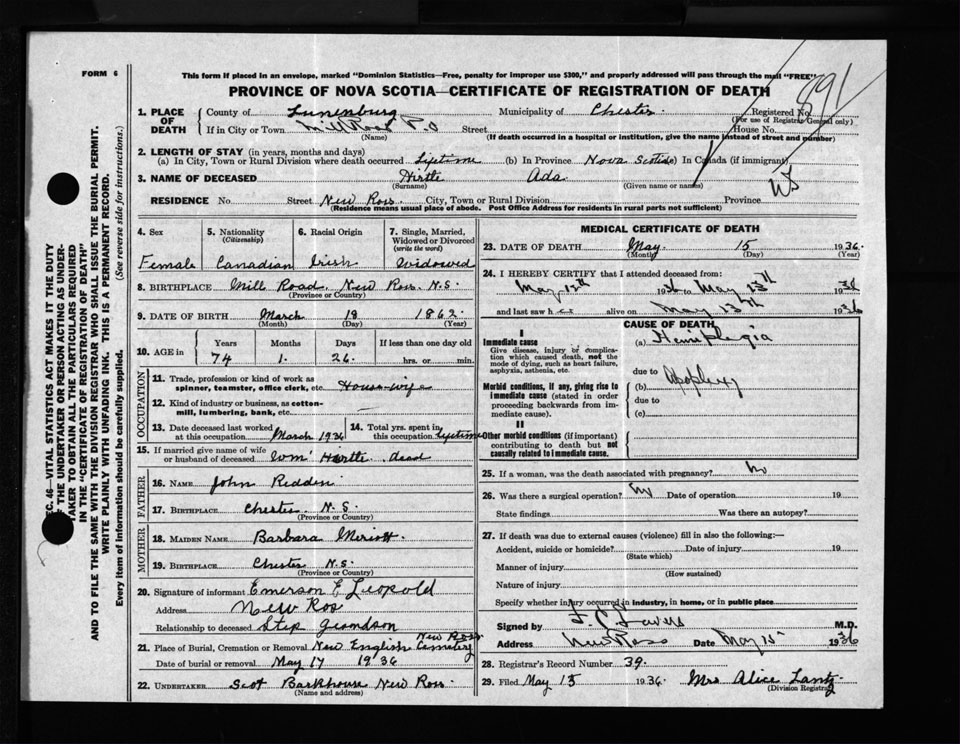 FORM 6
This form if placed in an envelope, marked "Dominion Statistics—Free, penalty for improper use $300," and properly addressed will pass through the mail "FREE"
PROVINCE OF NOVA SCOTIA—CERTIFICATE OF REGISTRATION OF DEATH
891
1. PLACE OF DEATH
County of Lunenburg Municipality of Chester Registered No.
(For use of Registrar General only)
If in City or Town Mill Road P.O Street House No.
(Name) (If death occurred in a hospital or institution, give the name instead of street and number)
2. LENGTH OF STAY (in years, months and days)
(a) In City, Town or Rural Division where death occurred Lifetime (b) In Province Nova Scotia (c) In Canada (if immigrant)
3. NAME OF DECEASED Hirtle Ada
(Surname) (Given name or names)
RESIDENCE No. Street New Ross City, Town or Rural Division Province
(Residence means usual place of abode. Post Office Address for residents in rural parts not sufficient)
4. Sex
Female
5. Nationality
(Citizenship)
Canadian
6. Racial Origin
Irish
7. Single, Married, Widowed or Divorced
(write the word)
Widowed
8. BIRTHPLACE Mill Road New Ross. N.S.
(Province or Country)
9. DATE OF BIRTH March 18 1862
(Month) (Day) (Year)
10. AGE in
Years Months Days If less than one day old
74 1. 26. hrs. or min.
OCCUPATION
11. Trade, profession or kind of work as spinner, teamster, office clerk, etc. House-wife
12. Kind of industry or business, as cotton-mill, lumbering, bank, etc. —
13. Date deceased last worked at this occupation March 1936
14. Total yrs. spent in this occupation Lifetime
15. If married give name of wife or husband of deceased Wm' Hirtle dead
FATHER
16. NAME John Redden
17. BIRTHPLACE Chester N.S.
(Province or Country)
MOTHER
18. MAIDEN NAME Barbara Meriott
19. BIRTHPLACE Chester N.S.
(Province or Country)
20. Signature of informant Emerson E Leopold
Address New Ross
Relationship to deceased Step grandson
21. Place of Burial, Cremation or Removal New English Cemetery New Ross
Date of burial or removal May 17 1936
22. UNDERTAKER Scot Barkhouse New Ross.
(Name and address)
MEDICAL CERTIFICATE OF DEATH
23. DATE OF DEATH May 15 1936
(Month) (Day) (Year)
24. I HEREBY CERTIFY that I attended deceased from:
May 12th 1936 to May 15th 1936
and last saw her alive on May 15th 1936
CAUSE OF DEATH
I
Immediate cause
Give disease, injury or complication which caused death, not the mode of dying, such as heart failure, asphyxia, asthenia, etc.
(a) Hemiplegia
due to
Morbid conditions, if any, giving rise to immediate cause (stated in order proceeding backwards from immediate cause).
(b) Apoplexy
due to
(c)
II
Other morbid conditions (if important) contributing to death but not causally related to immediate cause.
25. If a woman, was the death associated with pregnancy? No
26. Was there a surgical operation? No Date of operation 19
State findings Was there an autopsy?
27. If death was due to external causes (violence) fill in also the following:—
Accident, suicide or homicide? Date of injury 19
(State which)
Manner of injury
(How sustained)
Nature of injury
Specify whether injury occurred in industry, in home, or in public place
Signed by F. C. Lavers M.D.
Address New Ross Date May 15 1936
28. Registrar's Record Number 39.
29. Filed May 15 1936 Mrs Alice Lantz
(Division Registrar)
SEC. 46—VITAL STATISTICS ACT MAKES IT THE DUTY OF THE UNDERTAKER OR PERSON ACTING AS UNDERTAKER TO OBTAIN ALL THE PARTICULARS REQUIRED IN THE "CERTIFICATE OF REGISTRATION OF DEATH"
AND TO FILE THE SAME WITH THE DIVISION REGISTRAR WHO SHALL ISSUE THE BURIAL PERMIT.
WRITE PLAINLY WITH UNFADING INK. THIS IS A PERMANENT RECORD.
Every item of Information should be carefully supplied. (See reverse side for instructions.)